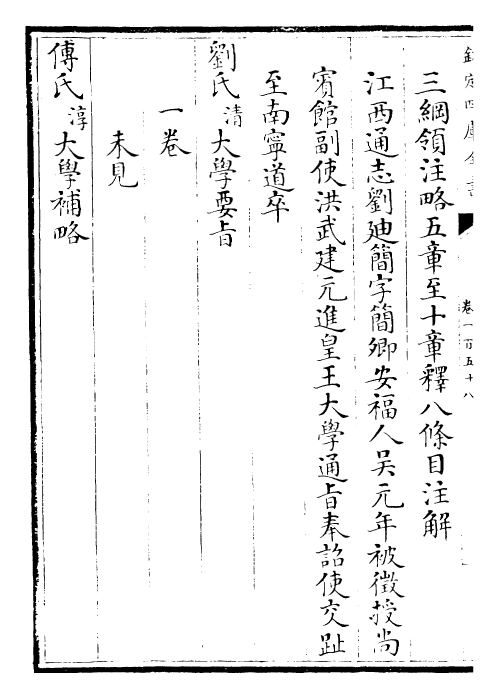 欽定四庫全書
卷一百五十八
三綱領注略五章至十章釋八條目注解
江西通志劉廸簡字簡卿安福人吴元年被徵授尚
賓館副使洪武建元進皇王大學通旨奉詔使交趾
至南寧道卒
劉氏清大學要旨
一卷
未見
傅氏淳大學補略